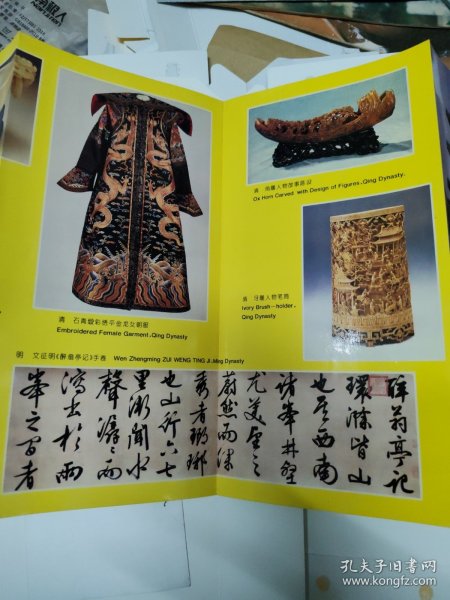 清 石青缎彩绣平金龙女朝服
Embroidered Female Garment.Qing Dynasty
清 角雕人物故事路设
Ox Horn Carved with Design of Figures.Qing Dynasty.
清 牙雕人物笔筒
Ivory Brush-holder.
Qing Dynasty
明 文征明《醉翁亭记》手卷 Wen Zhengming ZUI WENG TING JI.Ming Dynasty
醉翁亭记
环滁皆山
也其西南
诸峰林壑
尤美望之
蔚然而深
秀者琅琊
也山行六七
里渐闻水
声潺潺而
泻出于两
峰之间者
孔夫子旧书网
www.kongfz.com